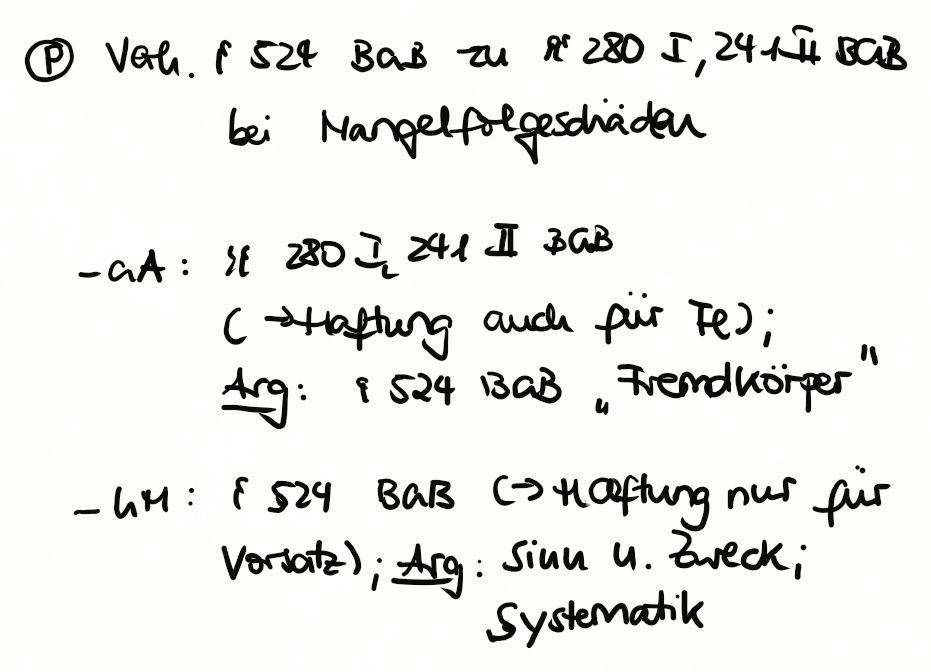 Ⓟ Verh. § 524 BGB zu §§ 280 I, 241 II BGB
bei Mangelfolgeschäden
- aA: §§ 280 I, 241 II BGB
(→ Haftung auch für Fe);
Arg: § 524 BGB „Fremdkörper"
- hM: § 524 BGB (→ Haftung nur für
Vorsatz); Arg: Sinn u. Zweck;
Systematik